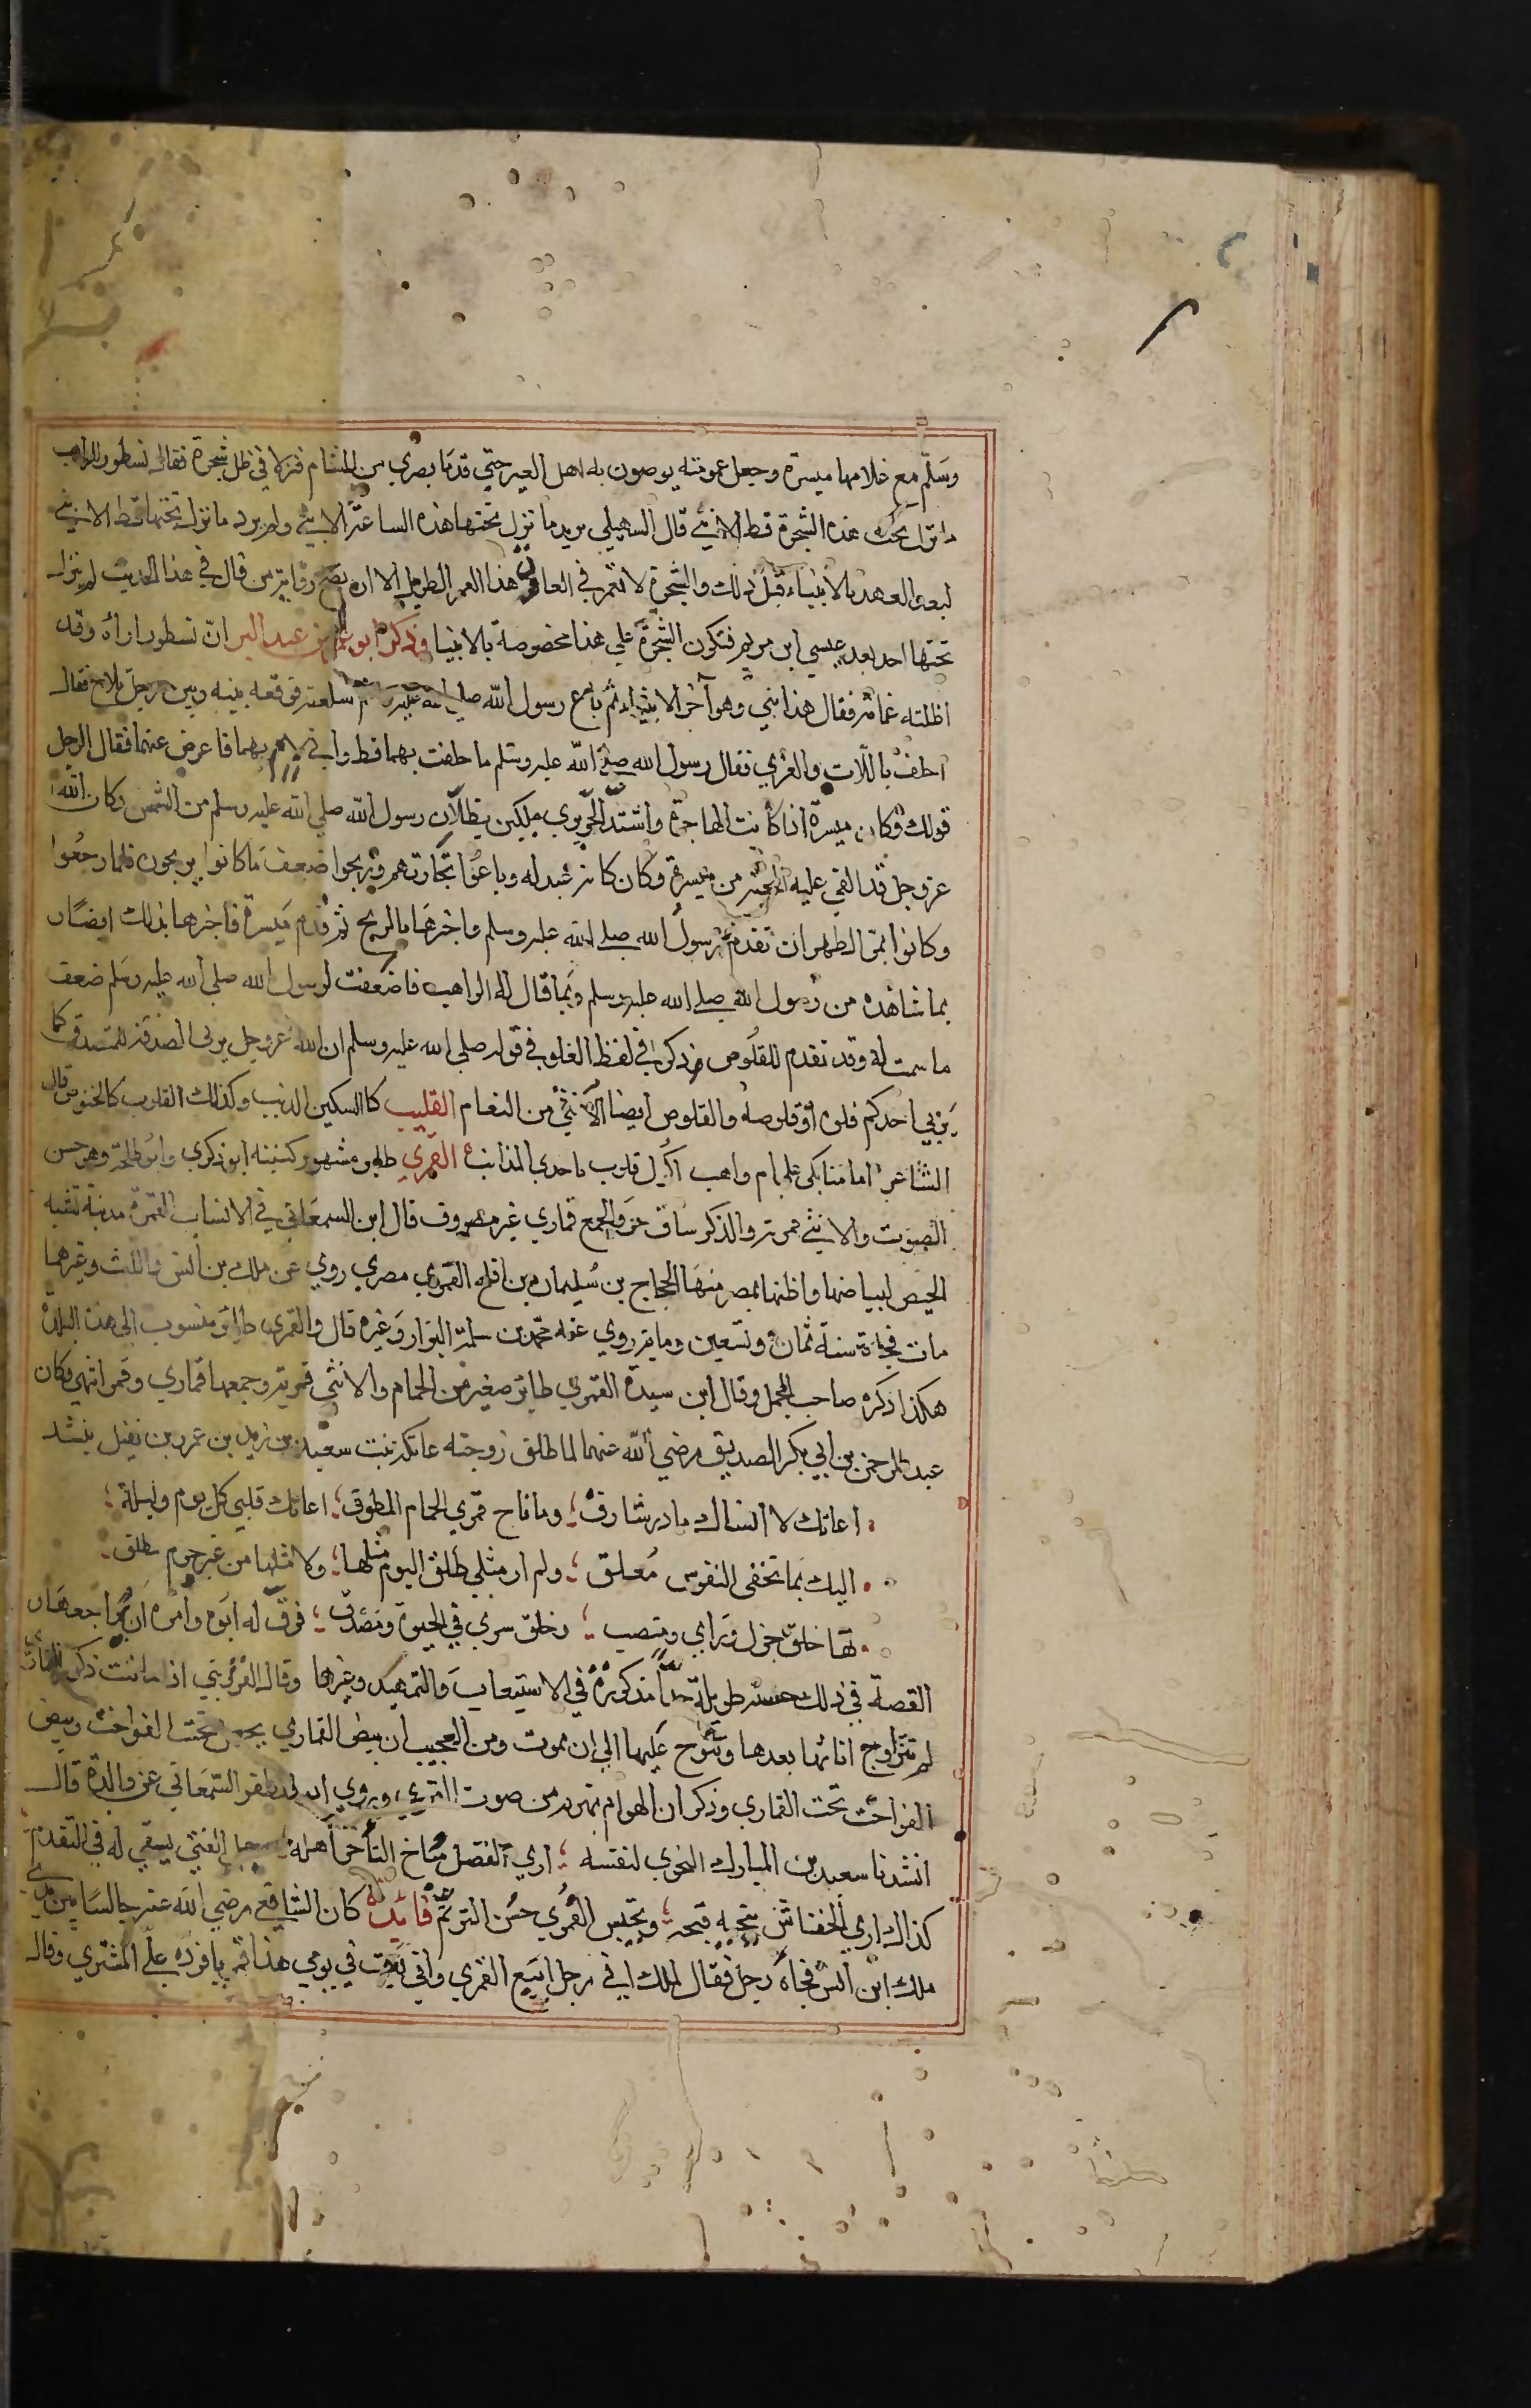 وسلم مع غلامها ميسرة وجعل عمومته يوصون به اهل العير حتي قدما بصري من الشام فنزلا في ظل شجرة فقال نسطور الراهب
ما نزل تحت هذه الشجرة قط الا نبي قال السهيلي يريد ما نزل تحتها هذه الساعة الا نبي ولم يرد ما نزل تحتها قط الا نبي
لبعد العهد بالانبياء قبل ذلك والشجرة لا تعمر في العادة هذا العمر الطويل الا ان يصح رواية من قال في هذا الحديث لم ينزل
تحتها احد بعد عيسي ابن مريم فتكون الشجرة علي هذا مخصوصة بالانبيا وذكر ابو عمر بن عبد البر ان نسطورا راه وقد
اظلته غمامة فقال هذا نبي وهو آخر الانبياء ثم باع رسول الله صلي الله عليه وسلم سلعته فوقعه بينه وبين رجل ملاح فقال
احلف باللات والعزي فقال رسول الله صلي الله عليه وسلم ما حلفت بهما قط واني لامر بهما فاعرض عنهما فقال الرجل
قولك وكان ميسرة اذا كانت الهاجرة واشتد الحر يري ملكين يظلان رسول الله صلي الله عليه وسلم من الشمس وكان الله
عز وجل قد القي عليه المحبة من ميسرة وكان كانه عبد له وباعوا تجارتهم وربحوا ضعف ما كانوا يربحون فلما رجعوا
وكانوا بمر الظهران تقدم رسول الله صلي الله عليه وسلم واخبرها بالربح ثم قدم ميسرة فاخبرها بذلك ايضا
بما شاهده من رسول الله صلي الله عليه وسلم وبما قال له الراهب فاضعفت لرسول الله صلي الله عليه وسلم ضعف
ما سمت له وقد تقدم للقلوص ذكر في لفظ الفلو في قوله صلي الله عليه وسلم ان الله عز وجل يربي الصدقة للمتصدق كما
يربي احدكم فلوه او قلوصه والقلوص ايضا الانثي من النعام القليب كالسكين الذيب وكذلك القلوب كالخنوص قال
الشاعر اما منا بكي علي ام واهب اكيل قلوب باحدي المذانب القمري طاير مشهور كنيته ابو ذكري وابو طلحة وهو حسن
الصوت والانثي قمرية والذكر ساق حر والجمع قماري غير مصروف قال ابن السمعاني في الانساب القمرة مدينة تشبه
الجص لبياضها واظنها بمصر منها الحجاج بن سليمان بن افلح القمري مصري روي عن ملك بن انس والليث وغيرهما
مات فجاءة سنة ثمان وتسعين ومايه روي عنه محمد بن سلمة البزار وغيره قال والقمري طاير منسوب الي هذه البلدة
هكذا ذكره صاحب المجمل وقال ابن سيدة القمري طاير صغير من الحمام والانثي قمرية وجمعها قماري وقمر انتهي وكان
عبد الرحمن بن ابي بكر الصديق رضي الله عنهما لما طلق زوجته عاتكة بنت سعيد بن زيد بن عمرو بن نفيل ينشد
اعاتك لا انساك ما در شارق وما ناح قمري الحمام المطوق اعاتك قلبي كل يوم وليلة
اليك بما تخفي النفوس معلق ولم ار مثلي طلق اليوم مثلها ولا مثلها من غير جرم يطلق
لها خلق جزل وراي ومنصب وخلق سري في الحيوة ومصدق فرق له ابوه وامره ان يراجعها
القصة في ذلك حسنة طويلة جدا مذكورة في الاستيعاب والتمهيد وغيرها وقال القزويني اذا ماتت ذكور القماري
لم تتزاوج اناثها بعدها وتنوح عليها الي ان تموت ومن العجيب ان بيض القماري يجعل تحت الفواخت وبيض
الفواخت تحت القماري وذكر ان الهوام تهرب من صوت القمري وروي ابو المظفر السمعاني عن والده قال
انشدنا سعيد بن المبارك النحوي لنفسه اري الفضل مناخ التأخر اهله وجهل الفتي يسعي له في التقدم
كذاك اري الخفاش ينجيه قبحه ويحبس القمري حسن الترنم فائدة كان الشافعي رضي الله عنه جالسا بين يدي
ملك ابن انس فجاه رجل فقال لملك اني رجل ابيع القمري واني بعت في يومي هذا قمريا فرده علي المشتري وقال